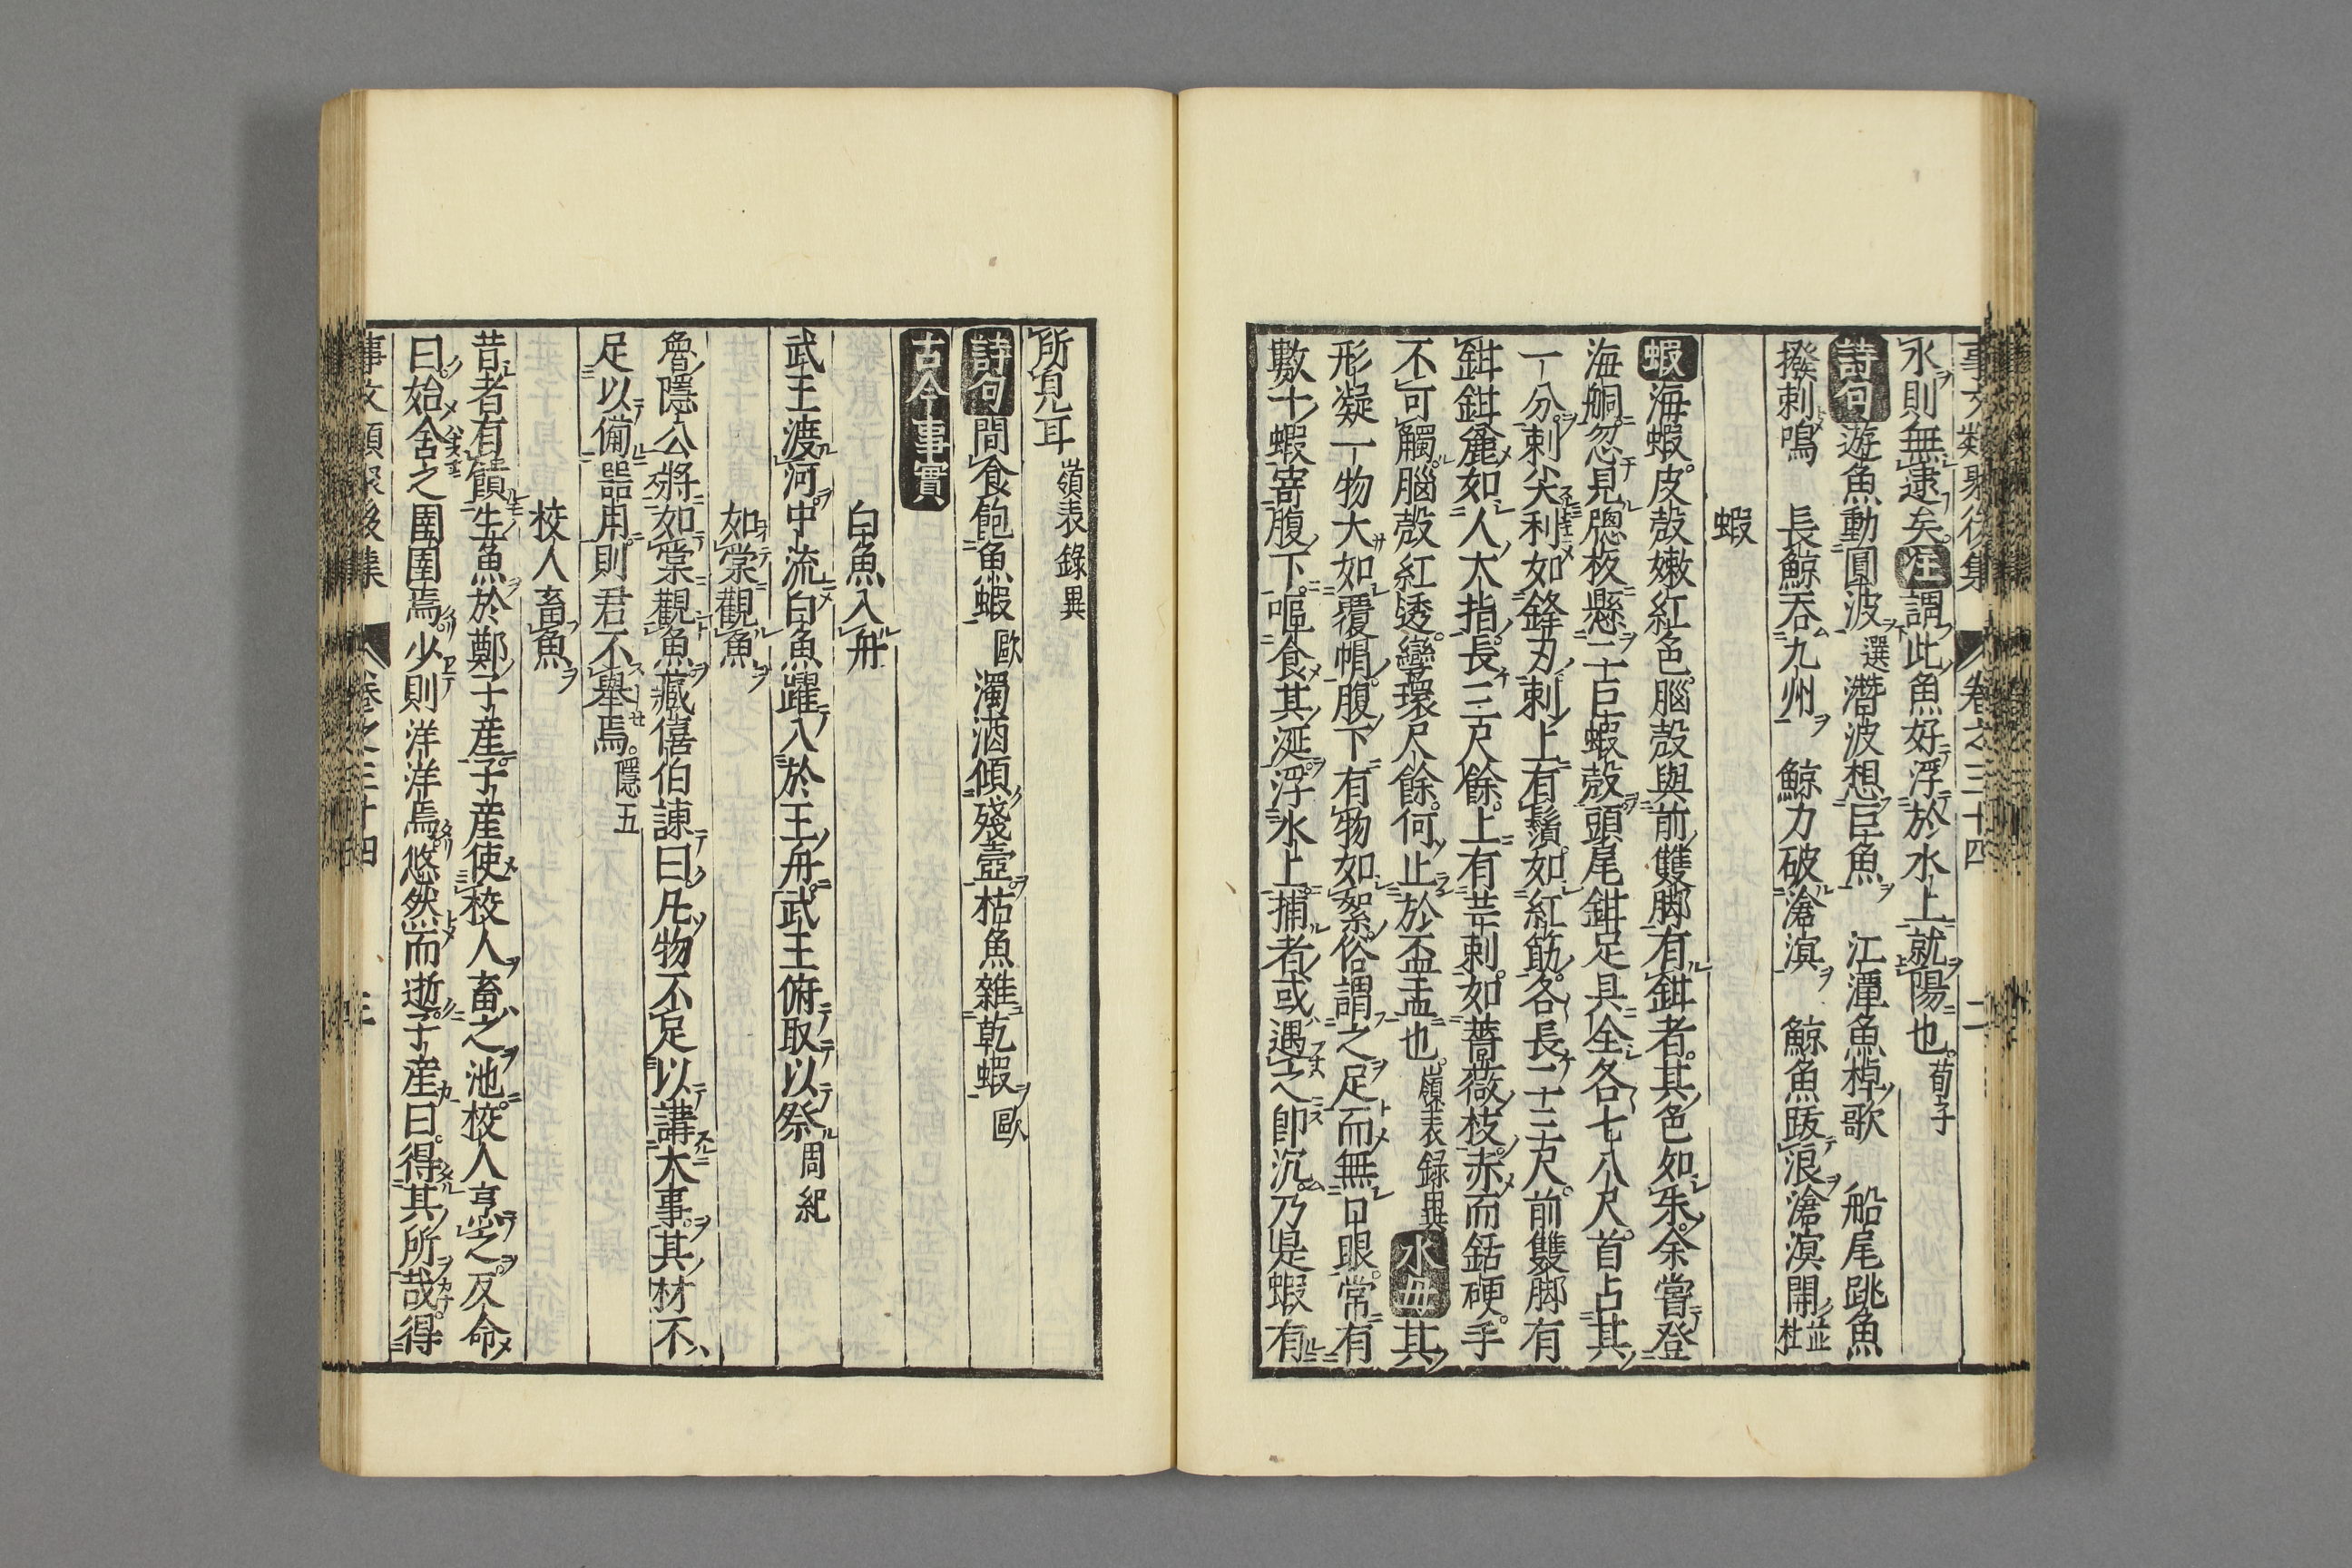 事文類聚後集　卷之三十四　二
水則無逮矣。注謂此魚好浮於水上就陽也。荀子
詩句遊魚動圓波選潛波想巨魚　江潭魚棹歌　船尾跳魚
撥剌鳴　長鯨吞九州　鯨力破滄溟　鯨魚跋浪滄溟開並杜
蝦
蝦海蝦。皮殼嫩紅色。腦殼與前雙脚有鉗者。其色如朱。余嘗登
海舸。忽見牎板懸二巨蝦殼。頭尾鉗足具全各七八尺。首占其
一分。刺尖利如鋒刃。刺上有鬚。如紅筋。各長二三尺。前雙脚有
鉗。鉗麄如人大指。長三尺餘。上有芒刺。如薔薇枝。赤而銛硬。手
不可觸。腦殼紅透。彎環尺餘。何止於盃盂也。嶺表録異水母其
形凝一物大如覆帽。腹下有物如絮。俗謂之足而無口眼。常有
數十蝦寄腹下。嘔食其涎。浮水上。捕者或遇之即沉。乃是蝦有
所見耳嶺表錄異
詩句間食飽魚蝦歐濁酒傾殘壺。枯魚雜乾蝦歐
古今事實
白魚入舟
武王渡河。中流白魚躍入於王舟。武王俯取以祭周紀
如棠觀魚
魯隱公將如棠觀魚。臧僖伯諫曰。凡物不足以講大事。其材不
足以備器用。則君不舉焉。隱五
校人畜魚
昔者有饋生魚於鄭子產。子產使校人畜之池。校人烹之。反命
曰。始舍之圉圉焉。少則洋洋焉。悠然而逝。子產曰。得其所哉。得
事文類聚後集　卷之三十四　三